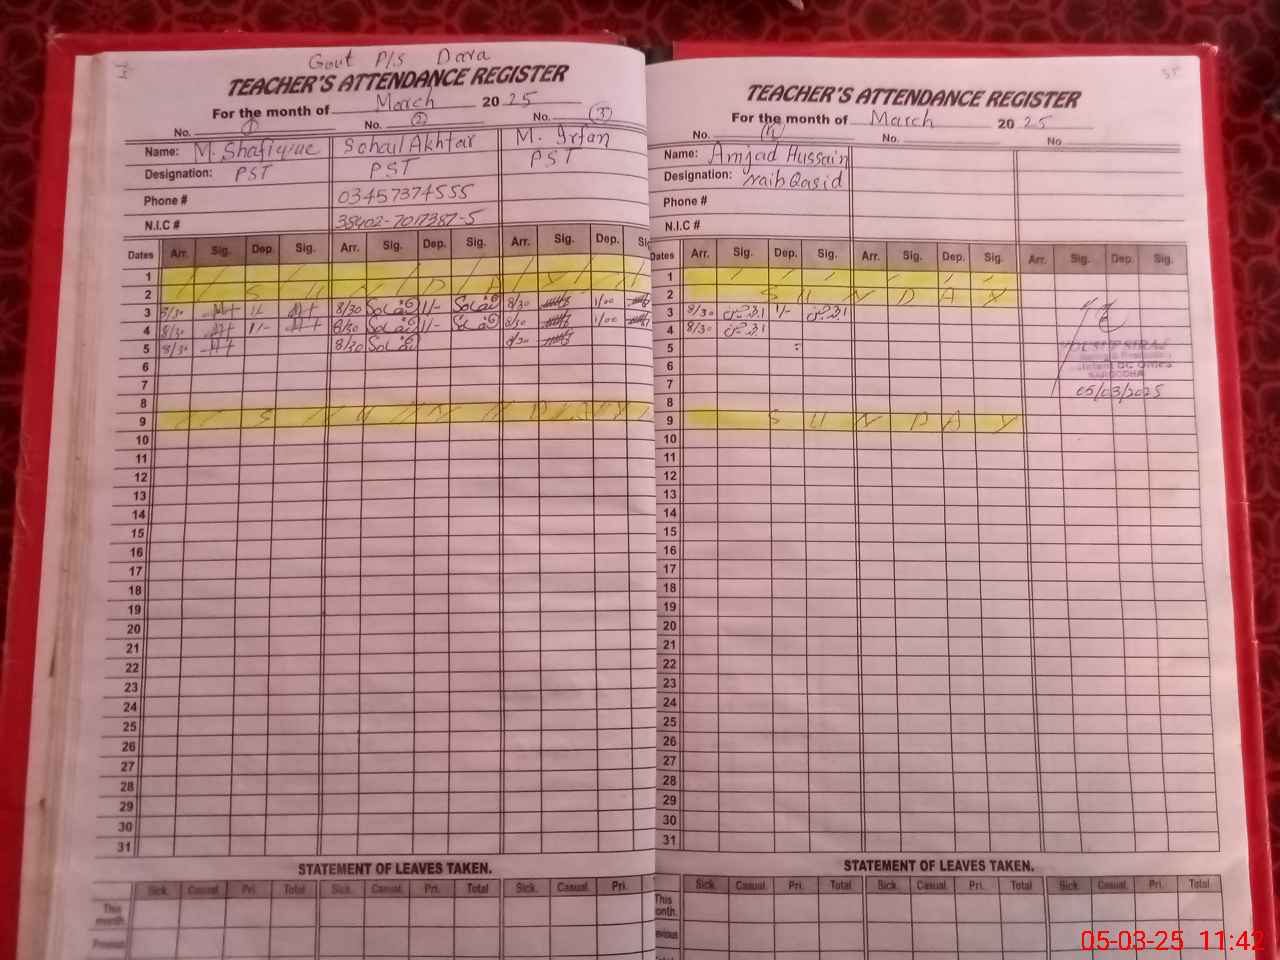 Govt P/s Dara
TEACHER'S ATTENDANCE REGISTER
For the month of March 2025
No. 1 No. 2 No. 3
Name: M. Shafique Sohail Akhtar M. Irfan
Designation: PST PST PST
Phone # 03457374555
N.I.C # 38402-7017387-5
Dates Arr. Sig. Dep. Sig. Arr. Sig. Dep. Sig. Arr. Sig. Dep. Sig
1
2 S U N D A Y
3 8/30 1/- 8/30 1/- 8/30 1/00
4 8/30 1/- 8/30 1/- 8/30 1/00
5 8/30 8/30 8/30
6
7
8
9 S U N D A Y
10
11
12
13
14
15
16
17
18
19
20
21
22
23
24
25
26
27
28
29
30
31
STATEMENT OF LEAVES TAKEN.
Sick. Casual. Pri. Total Sick. Casual. Pri. Total Sick. Casual. Pri.
This month.
Previous
35
TEACHER'S ATTENDANCE REGISTER
For the month of March 2025
No. 4 No. No
Name: Amjad Hussain
Designation: Naib Qasid
Phone #
N.I.C #
Dates Arr. Sig. Dep. Sig. Arr. Sig. Dep. Sig. Arr. Sig. Dep. Sig.
1
2 S U N D A Y
3 8/30 1/-
4 8/30
5
6
7
05/03/2025
8
9 S U N D A Y
10
11
12
13
14
15
16
17
18
19
20
21
22
23
24
25
26
27
28
29
30
31
STATEMENT OF LEAVES TAKEN.
Sick. Casual. Pri. Total Sick. Casual. Pri. Total Sick. Casual. Pri. Total
This
onth.
evious
05-03-25 11:42